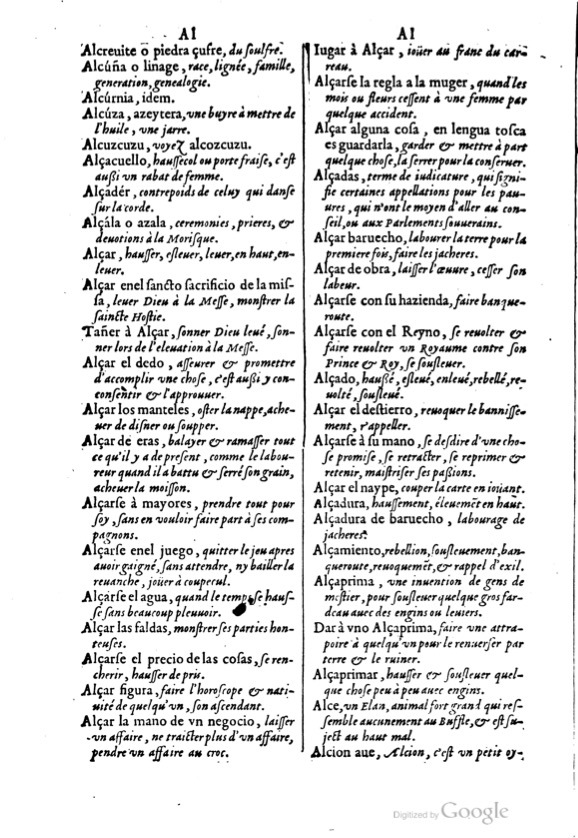 Al
Alcreuite o piedra çufre, du soulfre.
Alcúña o linage, race, lignée, famille,
generation, genealogie.
Alcúrnia, idem.
Alcúza, azeytera, vne buyre à mettre de
l'huile, vne jarre.
Alcuzcuzu, voyez alcozcuzu.
Alçacuello, haussecol ou porte fraise, c'est
aussi vn rabat de femme.
Alçadér, contrepoids de celuy qui danse
sur la corde.
Alçála o azala, ceremonies, prieres, &
deuotions à la Morisque.
Alçar, hausser, esleuer, leuer, en haut, en-
leuer.
Alçar enel sancto sacrificio de la mis-
sa, leuer Dieu à la Messe, monstrer la
saincte Hostie.
Tañer à Alçar, sonner Dieu leué, son-
ner lors de l'eleuation à la Messe.
Alçar el dedo, asseurer & promettre
d'accomplir vne chose, c'est aussi y con-
consentir & l'approuuer.
Alçar los manteles, oster la nappe, ache-
uer de disner ou soupper.
Alçar de eras, balayer & ramasser tout
ce qu'il y a de present, comme le labou-
reur quand il a battu & serré son grain,
acheuer la moisson.
Alçarse à mayores, prendre tout pour
soy, sans en vouloir faire part à ses com-
pagnons.
Alçarse enel juego, quitter le jeu apres
auoir gaigné, sans attendre, ny bailler la
reuanche, joüer à coupecul.
Alçarse el agua, quand le temps se haus-
se sans beaucoup pleuuoir.
Alçar las faldas, monstrer ses parties hon-
teuses.
Alçarse el precio de las cosas, se ren-
cherir, hausser de pris.
Alçar figura, faire l'horoscope & nati-
uité de quelqu'vn, son ascendant.
Alçar la mano de vn negocio, laisser
vn affaire, ne traicter plus d'vn affaire,
pendre vn affaire au croc.
Al
Iugar à Alçar, ioüer au franc du car-
reau.
Alçarse la regla a la muger, quand les
mois ou fleurs cessent à vne femme par
quelque accident.
Alçar alguna cosa, en lengua tosca
es guardarla, garder & mettre à part
quelque chose, la serrer pour la conseruer.
Alçadas, terme de iudicature, qui signi-
fie certaines appellations pour les pau-
ures, qui n'ont le moyen d'aller au con-
seil, ou aux Parlements souuerains.
Alçar baruecho, labourer la terre pour la
premiere fois, faire les jacheres.
Alçar de obra, laisser l'œuure, cesser son
labeur.
Alçarse con su hazienda, faire banque-
route.
Alçarse con el Reyno, se reuolter &
faire reuolter vn Royaume contre son
Prince & Roy, se sousleuer.
Alçado, haussé, esleué, enleué, rebellé, re-
uolté, sousleué.
Alçar el destierro, reuoquer le bannisse-
ment, r'appeller.
Alçarse à su mano, se desdire d'vne cho-
se promise, se retracter, se reprimer &
retenir, maistriser ses passions.
Alçar el naype, couper la carte en ioüant.
Alçadura, haussement, éleuement en haut.
Alçadura de baruecho, labourage de
jacheres.
Alçamiento, rebellion, sousleuement, ban-
queroute, reuoquemēt, & rappel d'exil.
Alçaprima, vne inuention de gens de
mestier, pour sousleuer quelque gros far-
deau auec des engins ou leuiers.
Dar à vno Alçaprima, faire vne attra-
poire à quelqu'vn pour le renuerser par
terre & le ruiner.
Alçaprimar, hausser & sousleuer quel-
que chose peu à peu auec engins.
Alce, vn Elan, animal fort grand qui res-
semble aucunement au Buffle, & est su-
ject au haut mal.
Alcion aue, Alcion, c'est vn petit oy-
Digitized by Google